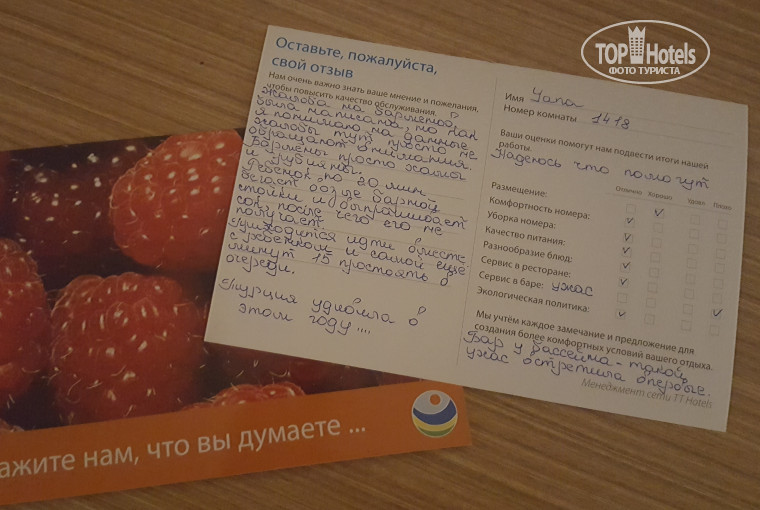 TOP Hotels
ФОТО ТУРИСТА
Оставьте, пожалуйста,
свой отзыв
Нам очень важно знать ваше мнение и пожелания,
чтобы повысить качество обслуживания.
Жалоба на барменов
была написана, но как
я понимаю на данные
жалобы тут просто не
обращают внимания.
Бармены просто хамы
и грубияны.
Ребёнок по 20 мин
бегает возле барной
стойки и выпрашивает
сок, после чего его не
получает.
Приходится идти вместе
с ребёнком и самой ещё
минут 15 простоять в
очереди.
Турция удивила в
этом году....
Имя Уапа
Номер комнаты 1418
Ваши оценки помогут нам подвести итоги нашей
работы.
Надеюсь что помогут
Отлично Хорошо Удовл. Плохо
Размещение:
Комфортность номера:
Уборка номера:
Качество питания:
Разнообразие блюд:
Сервис в ресторане:
Сервис в баре: ужас
Экологическая политика:
Мы учтём каждое замечание и предложение для
создания более комфортных условий вашего отдыха.
Бар у бассейна - такой
ужас встретила впервые.
Менеджмент сети TT Hotels
ажите нам, что вы думаете ...